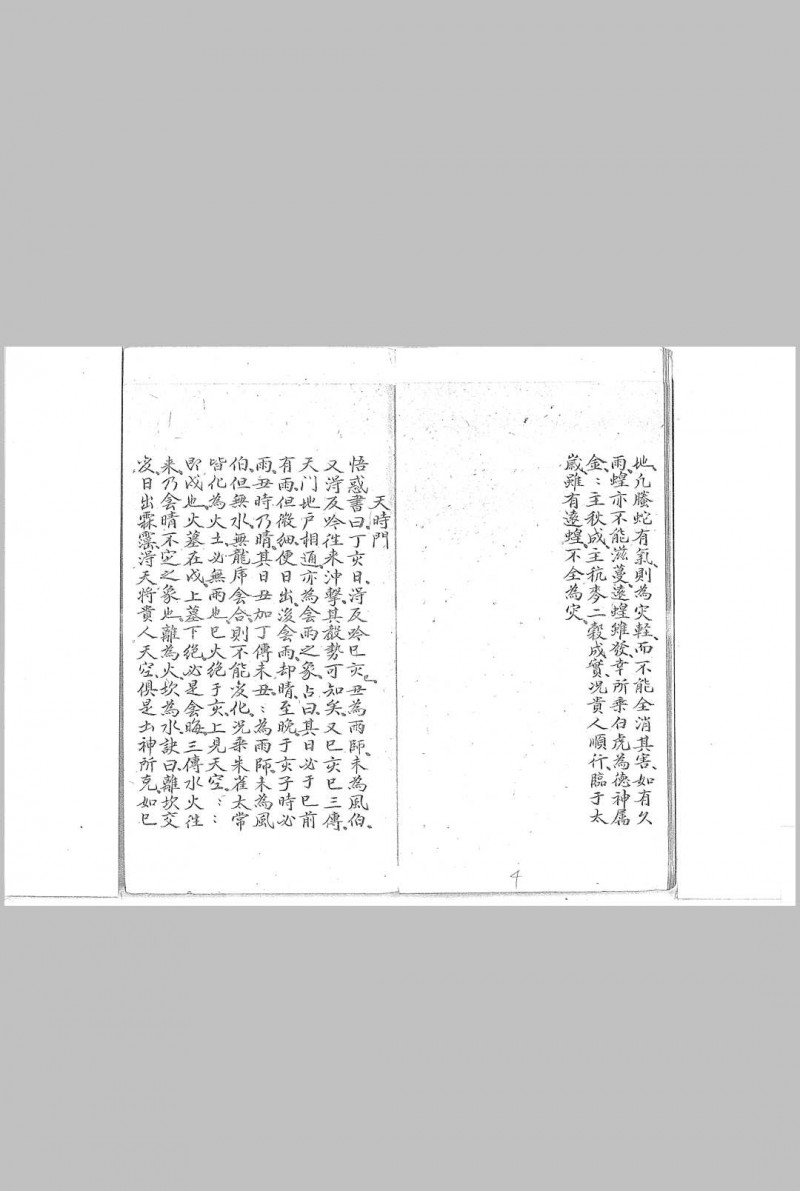 地、凢螣蛇有氣、則為灾輊、而不能全消其害、如有久
雨、蝗亦不能滋蔓、遠蝗雖發、幸所乘白虎為德神属
金、：主秋成、主秔麥二穀成實、况貴人順行、臨于太
嵗、雖有遠蝗、不全為灾、
4
天時門
悟惑書曰、丁亥日、淂反吟巳亥、丑為雨師、未為風伯、
又淂反吟、徃来沖擊、其殺勢可知矣、又巳亥巳三傳、
天門地戶相通、亦為会雨之象、占曰、其日必于巳前
有雨、但微細、便日出、後会雨、却晴、至晚、于亥子時必
雨、丑時乃晴、其日丑加丁傳未丑、：為雨師、未為風
伯、但無水、無龍虎会合、則不能変化、况乘朱雀太常
皆化為火土、必無雨也、巳火絶于亥、上見天空、：：
即戌也、火墓在戌、上墓下絶、必是会晦、三傳水火徃
来、乃会晴不定之象也、離為火、坎為水、訣曰、離坎交
変、日出霖霥、淂天将貴人天空、俱是土神所克、如巳